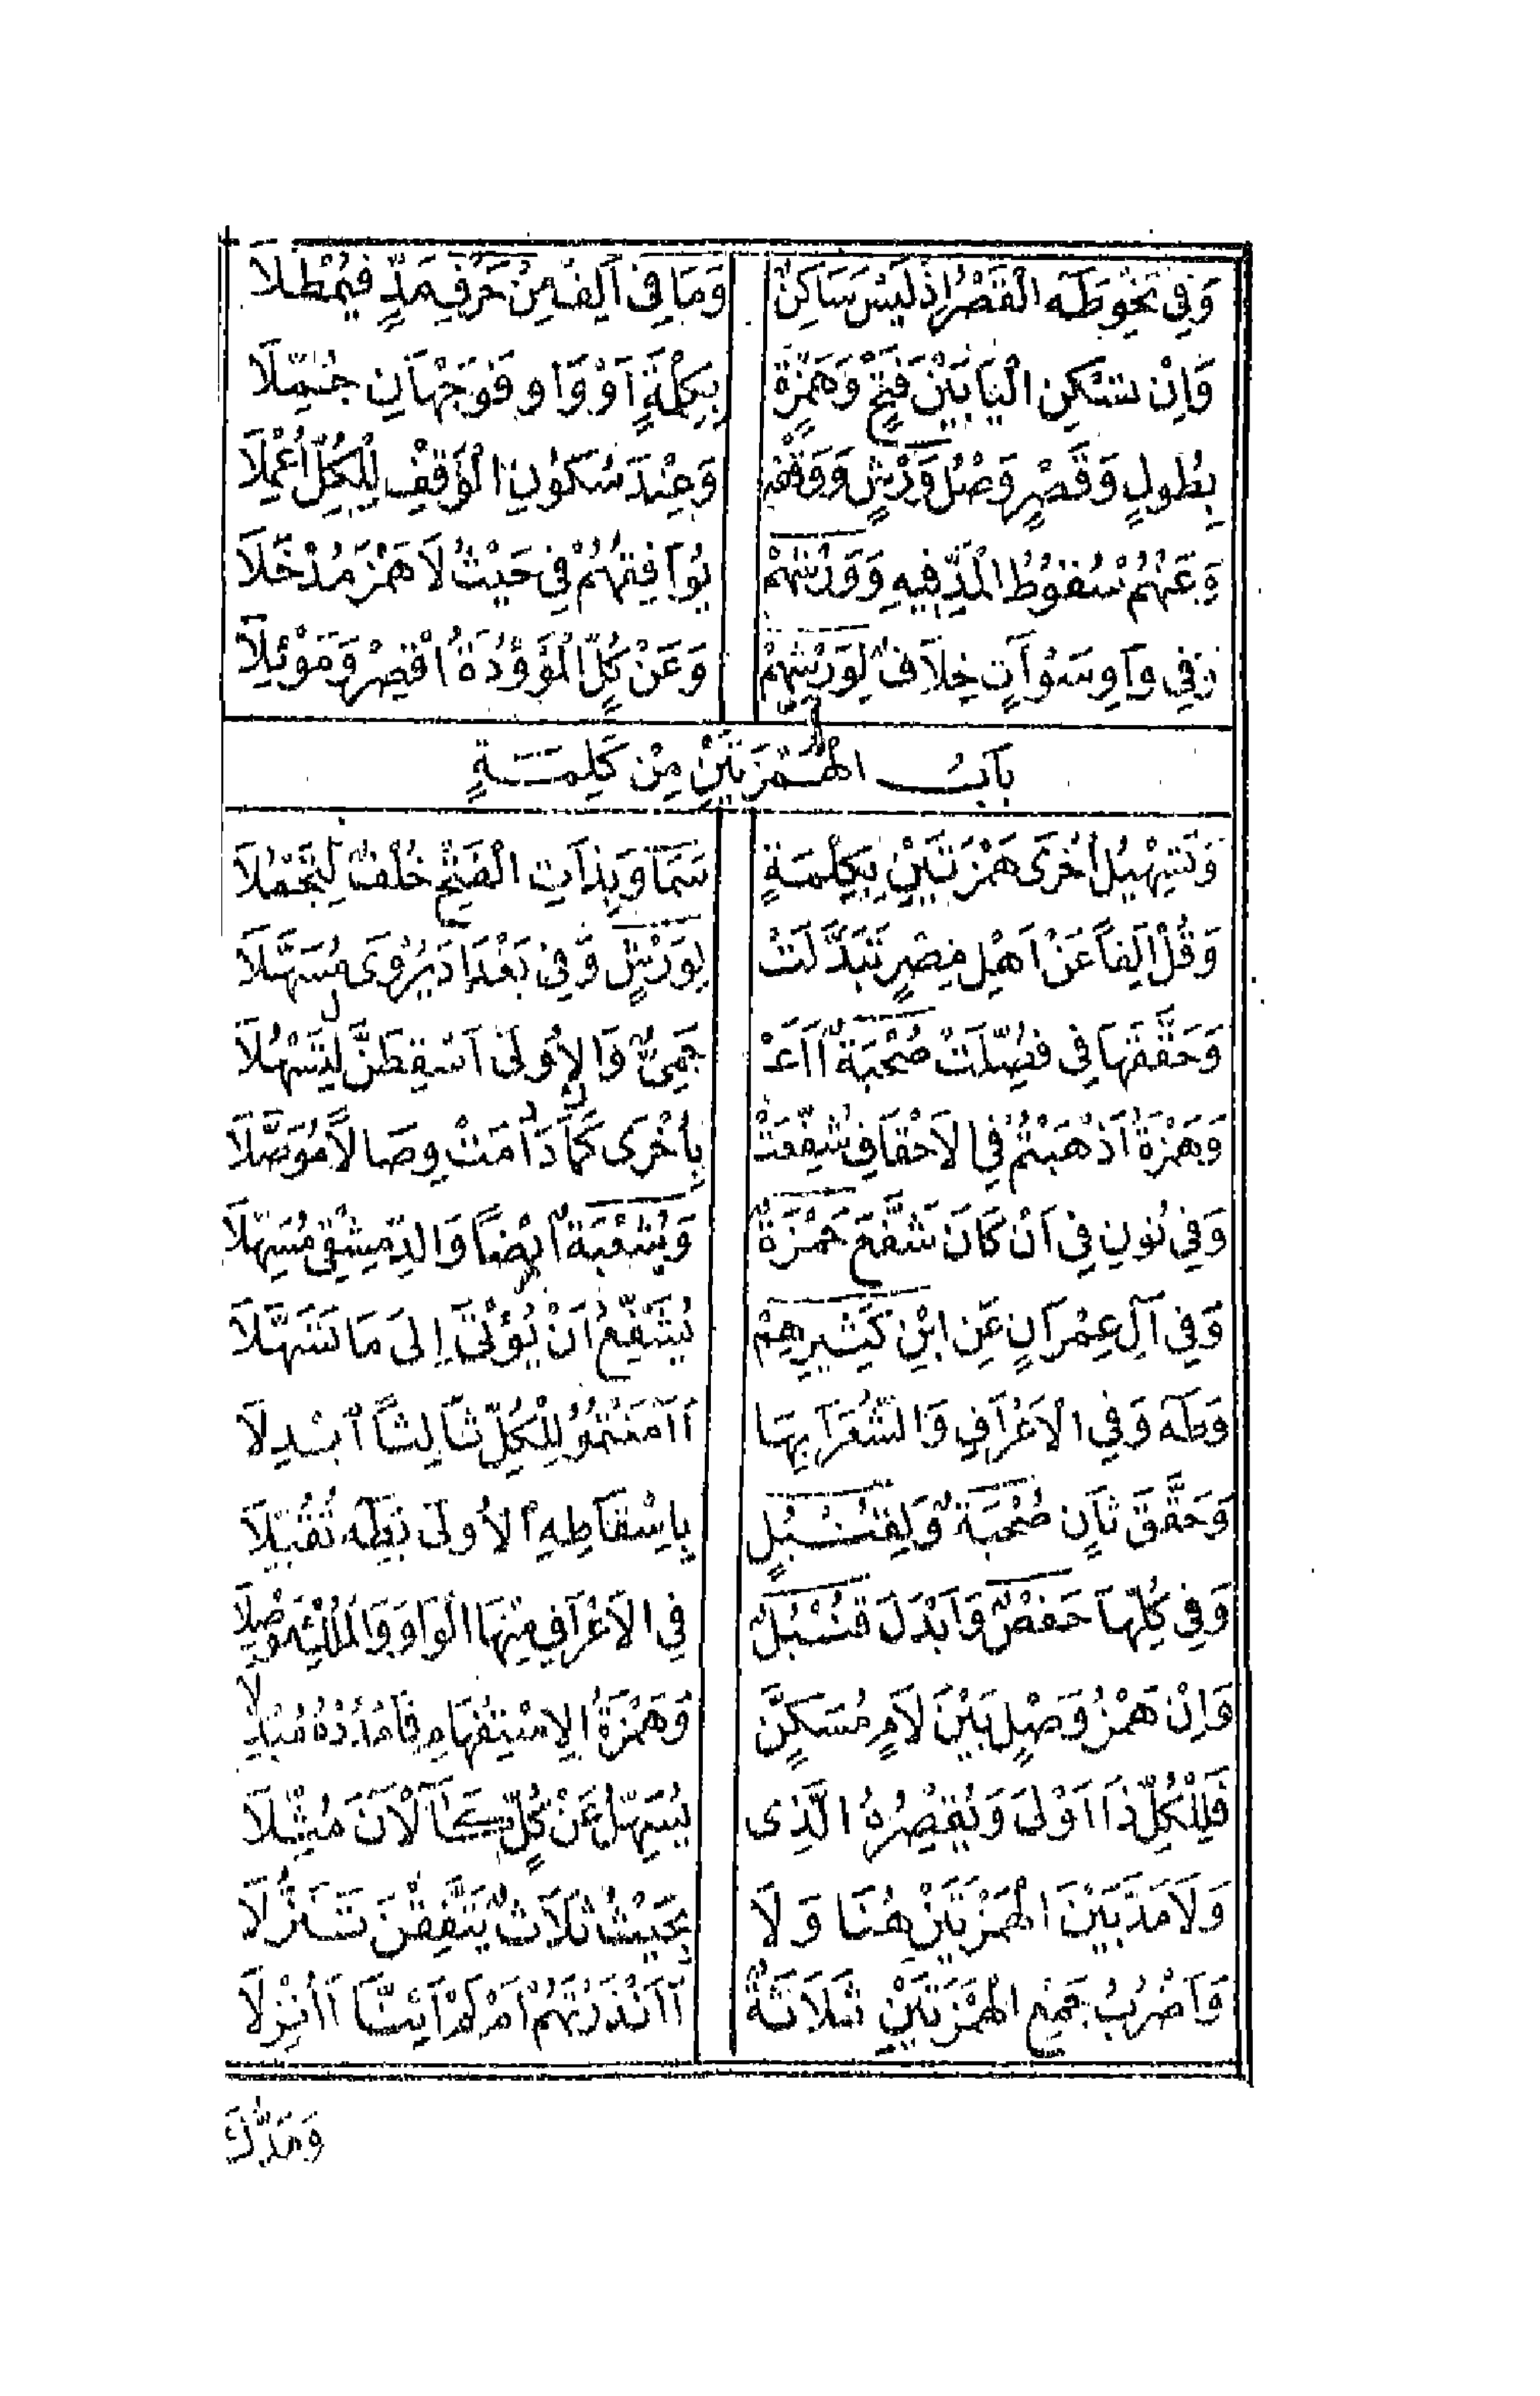 وَفِي نَحْوِ طٰهَ الْقَصْرُ اِذْ لَيْسَ سَاكِنٌ وَمَا فِي اَلِفْ مِنْ حَرْفِ مَدٍّ فَيُمْطَلَا
وَاِنْ تَسْكُنِ الْيَا بَيْنَ فَتْحٍ وَهَمْزَةٍ بِكِلْمَةٍ اَوْ وَاوٍ فَوَجْهَانِ جُمِّلَا
بِطُولٍ وَقَصْرٍ وَصْلُ وَرْشٍ وَوَقْفُهُ وَعِنْدَ سُكُونِ الْوَقْفِ لِلْكُلِّ اُعْمِلَا
وَعَنْهُمْ سُقُوطُ الْمَدِّ فِيهِ وَوَرْشُهُمْ يُوَافِقُهُمْ فِي حَيْثُ لَا هَمْزَ مُدْخَلَا
وَفِي وَاوِ سَوْآتٍ خِلَافٌ لِوَرْشِهِمْ وَعَنْ كُلٍّ الْمَوْؤُدَةُ اقْصِرْ وَمَوْئِلَا
بَابُ الْهَمْزَتَيْنِ مِنْ كَلِمَةٍ
وَتَسْهِيلُ اُخْرَى هَمْزَتَيْنِ بِكِلْمَةٍ سَمَا وَبِذَاتِ الْفَتْحِ خُلْفٌ لِتَجْمُلَا
وَقُلْ اَلِفًا عَنْ اَهْلِ مِصْرٍ تَبَدَّلَتْ لِوَرْشٍ وَفِي بَغْدَادَ يُرْوَى مُسَهَّلَا
وَحَقَّقَهَا فِي فُصِّلَتْ صُحْبَةٌ اَاَعْـ جَمِيٌّ وَالْاُولَى اَسْقِطَنَّ لِتَسْهُلَا
وَهَمْزَةُ اَذْهَبْتُمْ فِي الْاَحْقَافِ شُفِّعَتْ بِاُخْرَى كَمَا دَامَتْ وِصَالًا مُوَصَّلَا
وَفِي نُونِ فِي اَنْ كَانَ شَفَّعَ حَمْزَةٌ وَشُعْبَةُ اَيْضًا وَالدِّمَشْقِي مُسَهِّلَا
وَفِي آلِ عِمْرَانٍ عَنِ ابْنِ كَثِيرِهِمْ يُشَفِّعُ اَنْ يُؤْتَى اِلَى مَا تَسَهَّلَا
وَطٰهَ وَفِي الْاَعْرَافِ وَالشُّعَرَا بِهَا اَاٰمَنْتُمُو لِلْكُلِّ ثَالِثًا اُبْدِلَا
وَحَقَّقَ ثَانٍ صُحْبَةٌ وَلِقُنْبُلٍ بِاِسْقَاطِهِ الْاُولَى بِطٰهَ تُقُبِّلَا
وَفِي كُلِّهَا حَفْصٌ وَاَبْدَلَ قُنْبُلٌ فِي الْاَعْرَافِ مِنْهَا الْوَاوَ وَالْمُلْكِ مُوصِلَا
وَاِنْ هَمْزُ وَصْلٍ بَيْنَ لَامٍ مُسَكَّنٍ وَهَمْزَةِ الْاِسْتِفْهَامِ فَامْدُدْهُ مُبْدِلَا
فَلِلْكُلِّ ذَا اَوْلَى وَيَقْصُرُهُ الَّذِى يُسَهِّلُ عَنْ كُلٍّ كَآلْاٰنَ مُثِّلَا
وَلَا مَدَّ بَيْنَ الْهَمْزَتَيْنِ هُنَا وَلَا بِحَيْثُ ثَلَاثٌ يَتَّفِقْنَ تَنَزُّلَا
وَاَضْرُبُ جَمْعِ الْهَمْزَتَيْنِ ثَلَاثَةٌ اَاَنْذَرْتَهُمْ اَمْ لَمْ اَئِنَّا اَاُنْزِلَا
وَمَدُّكَ